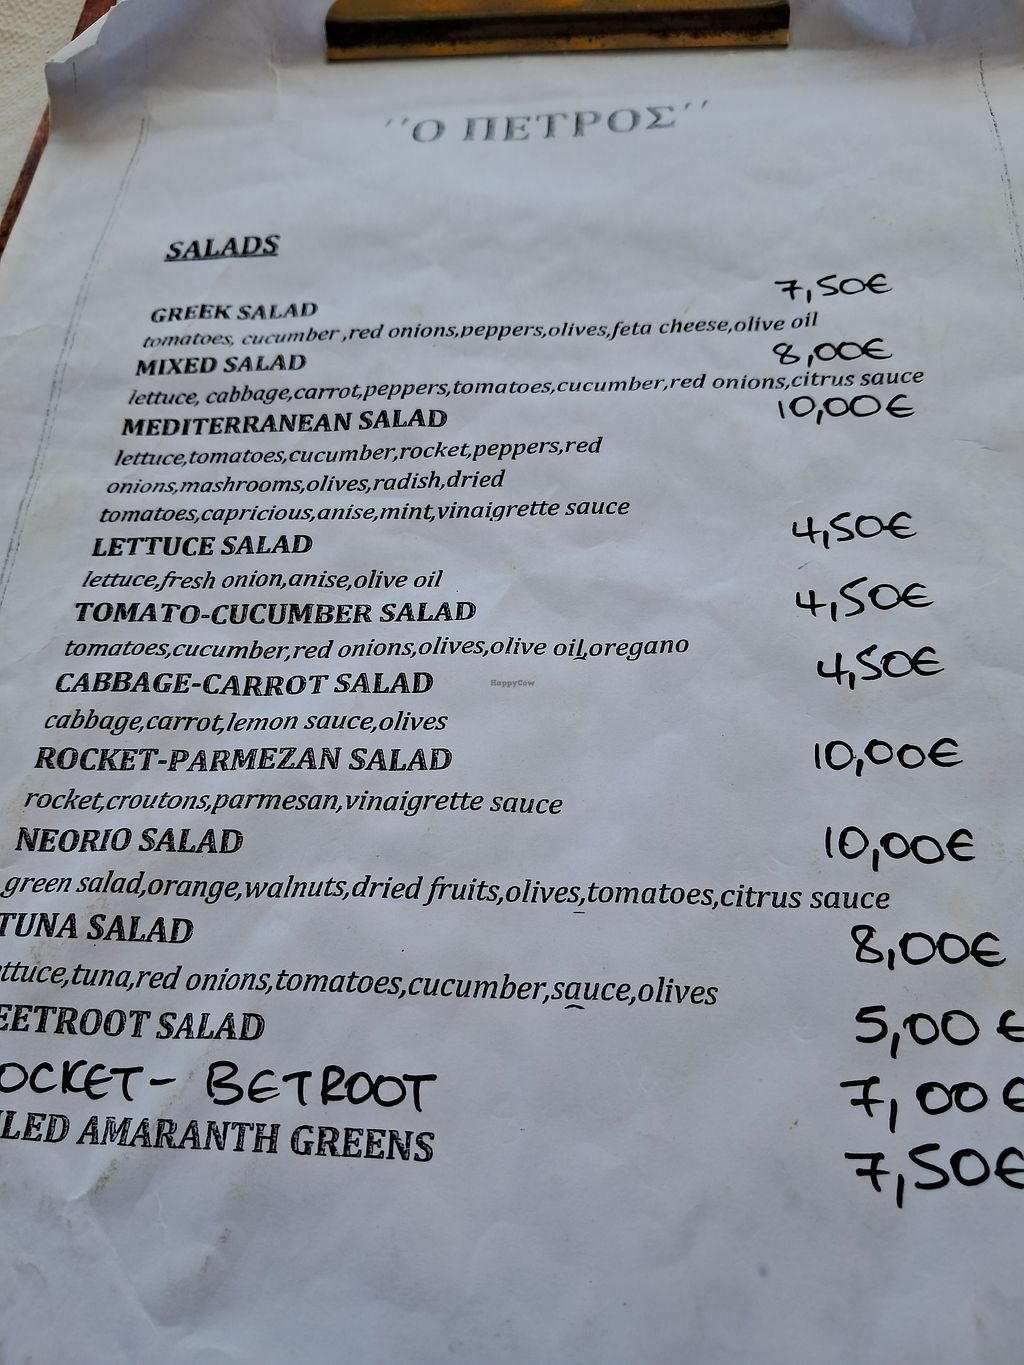 ''Ο ΠΕΤΡΟΣ''
SALADS
GREEK SALAD 7,50€
tomatoes, cucumber ,red onions,peppers,olives,feta cheese,olive oil
MIXED SALAD 8,00€
lettuce, cabbage,carrot,peppers,tomatoes,cucumber,red onions,citrus sauce
MEDITERRANEAN SALAD 10,00€
lettuce,tomatoes,cucumber,rocket,peppers,red
onions,mashrooms,olives,radish,dried
tomatoes,capricious,anise,mint,vinaigrette sauce
LETTUCE SALAD 4,50€
lettuce,fresh onion,anise,olive oil
TOMATO-CUCUMBER SALAD 4,50€
tomatoes,cucumber,red onions,olives,olive oil,oregano
CABBAGE-CARROT SALAD 4,50€
cabbage,carrot,lemon sauce,olives
HappyCow
ROCKET-PARMEZAN SALAD 10,00€
rocket,croutons,parmesan,vinaigrette sauce
NEORIO SALAD 10,00€
green salad,orange,walnuts,dried fruits,olives,tomatoes,citrus sauce
TUNA SALAD 8,00€
ettuce,tuna,red onions,tomatoes,cucumber,sauce,olives
EETROOT SALAD 5,00 €
OCKET - BETROOT 7,00€
LED AMARANTH GREENS 7,50€